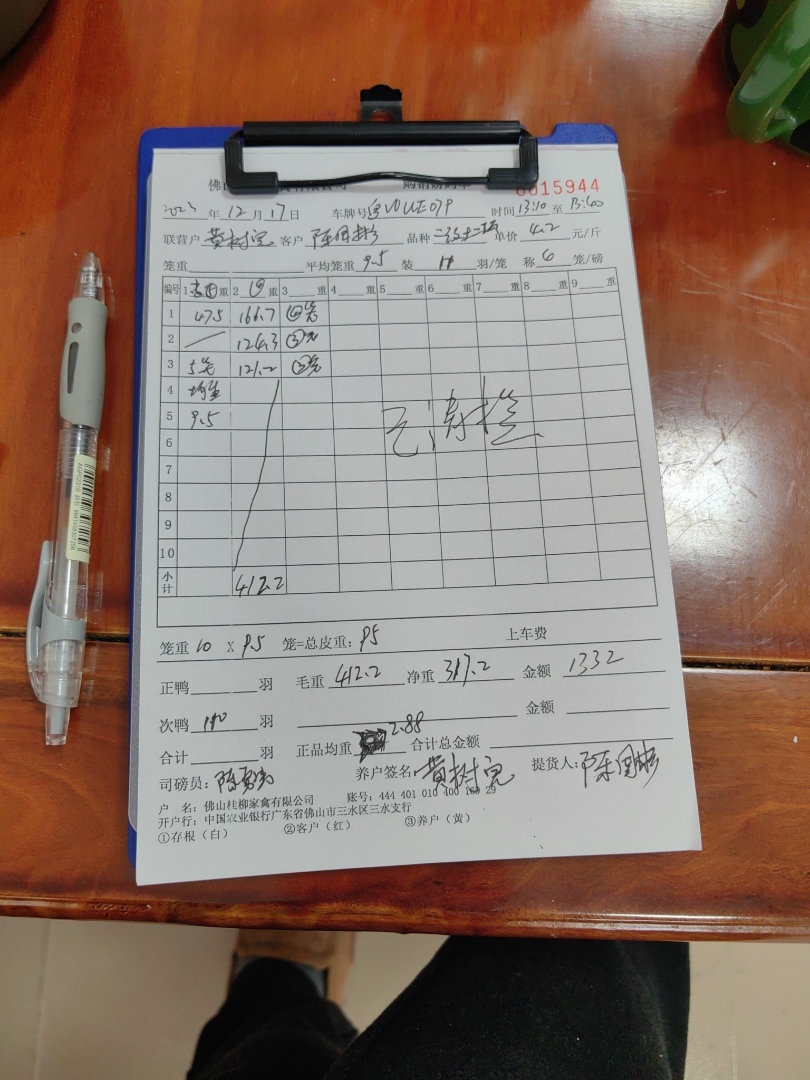 佛山 有限公司 购销磅码单 0015944
2023 年 12 月 17 日 车牌号 时间 13:10 至 13:40
联营户 黄树宽 客户 陈国彬 品种 单价 4.2 元/斤
笼重 平均笼重 9.5 装 11 羽/笼 称 6 笼/磅
编号 1 重 2 重 3 重 4 重 5 重 6 重 7 重 8 重 9 重
1 47.5 166.7 ④笼
2 124.3 ③笼
3 5笼 121.2 ③笼
4 均重
5 9.5
6
7
8
9
10
已清栏
小计 412.2
笼重 10 X 9.5 笼=总皮重: 95 上车费
正鸭 羽 毛重 412.2 净重 317.2 金额 1332
次鸭 110 羽 金额
合计 羽 正品均重 2.88 合计总金额
司磅员: 养户签名: 黄树宽 提货人: 陈国彬
户 名: 佛山桂柳家禽有限公司 账号: 444 401 010 400 169 29
开户行: 中国农业银行广东省佛山市三水区三水支行
①存根（白） ②客户（红） ③养户（黄）